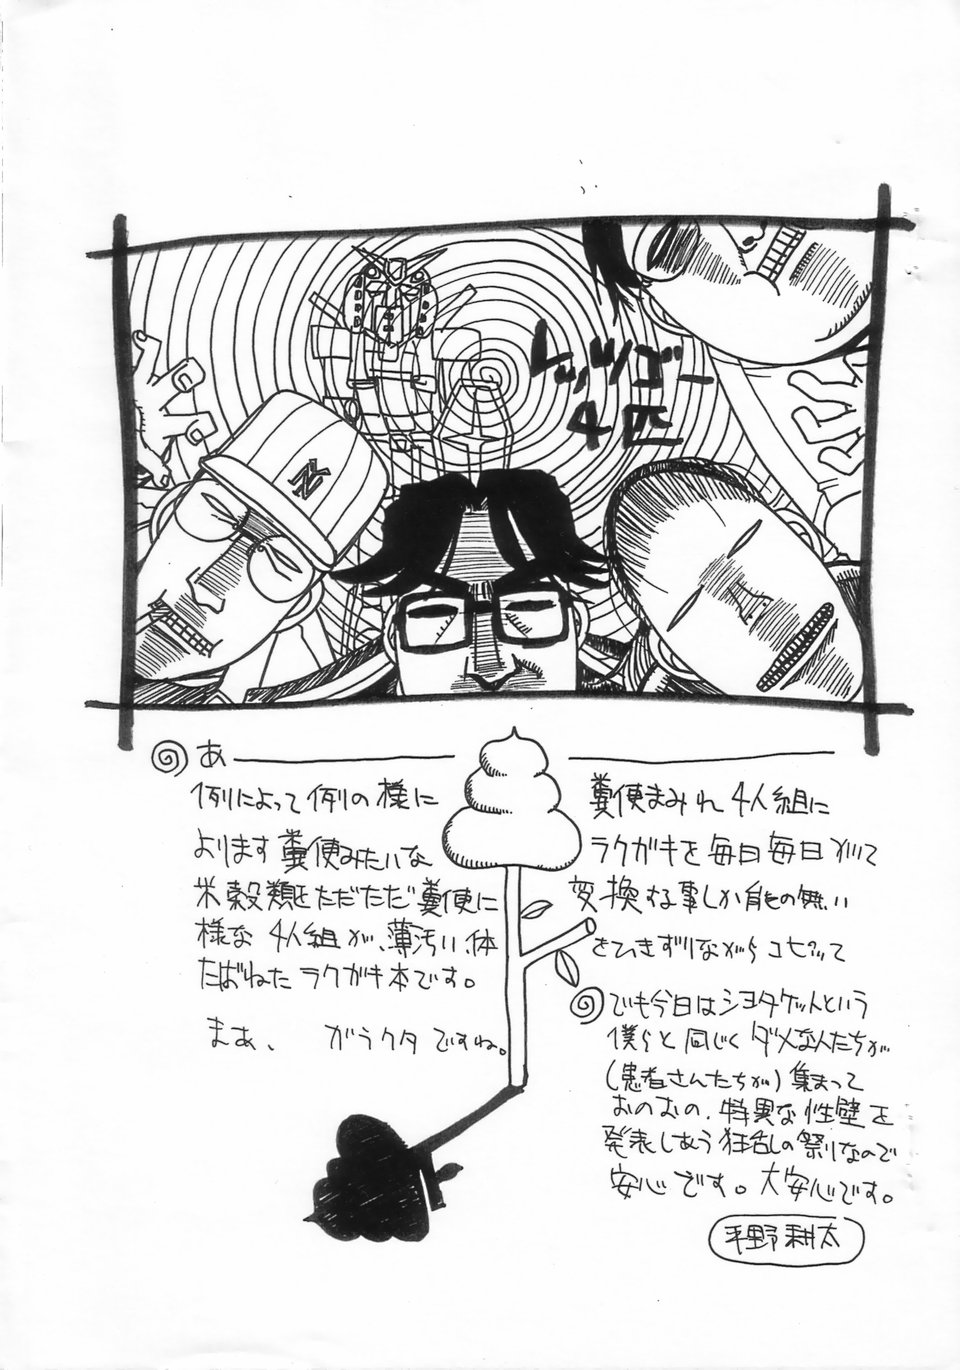 レッツゴー
4匹
NY
あ
例によって例の様に
糞便まみれ4人組に
よります糞便みたいな
ラクガキを毎日毎日
米穀類をただただ糞便に
変換する事しか能の無い
様な4人組が、薄汚い体
をひきずりながらコピッて
たばねたラクガキ本です。
まあ、ガラクタですね。
でも今日はショタケットという
僕らと同じくダメな人たちが
(患者さんたちが)集まって
おのおの、特異な性壁を
発表しあう狂乱の祭りなので
安心です。大安心です。
平野耕太